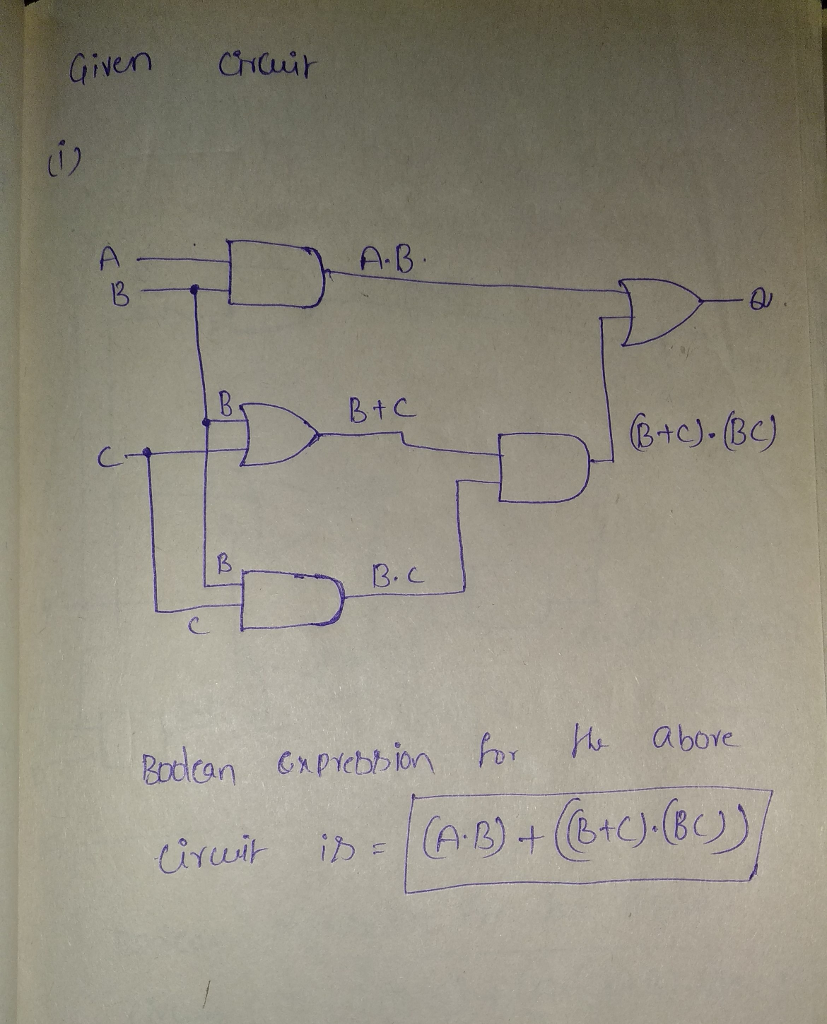 Given Circuit
(i)
A
B
A.B.
Q.
B
B+C
C
(B+C).(BC)
B
B.C
C
Boolean expression for the above
circuit is = (A.B) + ((B+C).(BC))